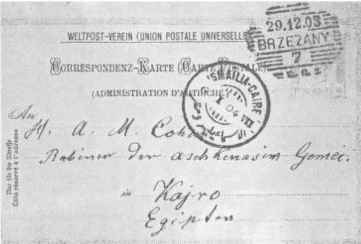 29.12.03
BRZEŻANY
7
WELTPOST-VEREIN (UNION POSTALE UNIVERSELLE)
CORRESPONDENZ-KARTE (CARTE POSTALE)
(ADMINISTRATION D'AUTRICHE)
ISMAILIA-CAIRE
I 04
An
H. A. M. Cohen
Rabiner der aschkenasim Gemei.
in Kajro
Egipten
Nur für die Adresse
Côté réservé à l'adresse